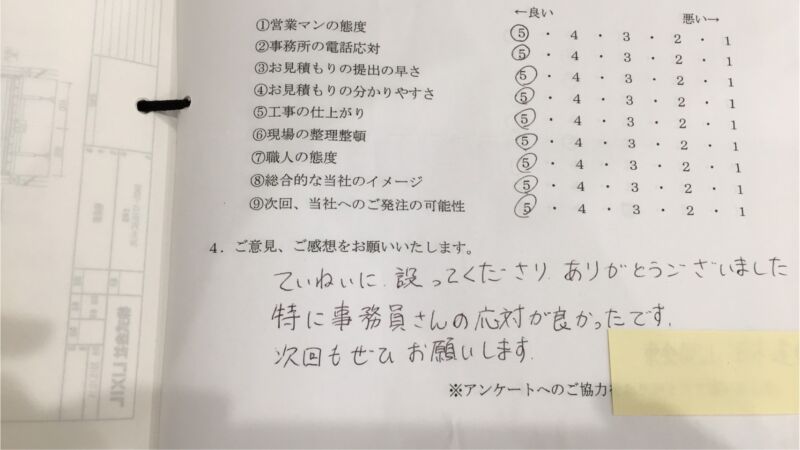 ←良い 悪い→
①営業マンの態度 5 ・ 4 ・ 3 ・ 2 ・ 1
②事務所の電話応対 5 ・ 4 ・ 3 ・ 2 ・ 1
③お見積もりの提出の早さ 5 ・ 4 ・ 3 ・ 2 ・ 1
④お見積もりの分かりやすさ 5 ・ 4 ・ 3 ・ 2 ・ 1
⑤工事の仕上がり 5 ・ 4 ・ 3 ・ 2 ・ 1
⑥現場の整理整頓 5 ・ 4 ・ 3 ・ 2 ・ 1
⑦職人の態度 5 ・ 4 ・ 3 ・ 2 ・ 1
⑧総合的な当社のイメージ 5 ・ 4 ・ 3 ・ 2 ・ 1
⑨次回、当社へのご発注の可能性 5 ・ 4 ・ 3 ・ 2 ・ 1
4．ご意見、ご感想をお願いいたします。
ていねいに 設ってくださり ありがとうございました
特に事務員さんの応対が良かったです.
次回もぜひ お願いします.
※アンケートへのご協力
株式会社 LIXIL